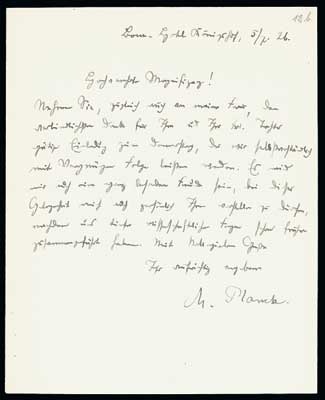 126
Bonn, Hotel Königshof, 5/7. 26.
Hochverehrte Magnifizenz!
Nehmen Sie, zugleich auch an meine Frau, den
verbindlichsten Dank für Ihre und Ihrer
gütige Einladung zum Donnerstag, der wir selbstverständlich
mit Vergnügen Folge leisten werden. Es wird
mir noch eine ganz besondere Freude sein, bei dieser
Gelegenheit mich noch persönlich Ihnen vorstellen zu dürfen,
nachdem uns bisher wissenschaftliche Fragen schon früher
zusammengeführt haben. Mit
Ihr aufrichtig ergebener
M. Planck.